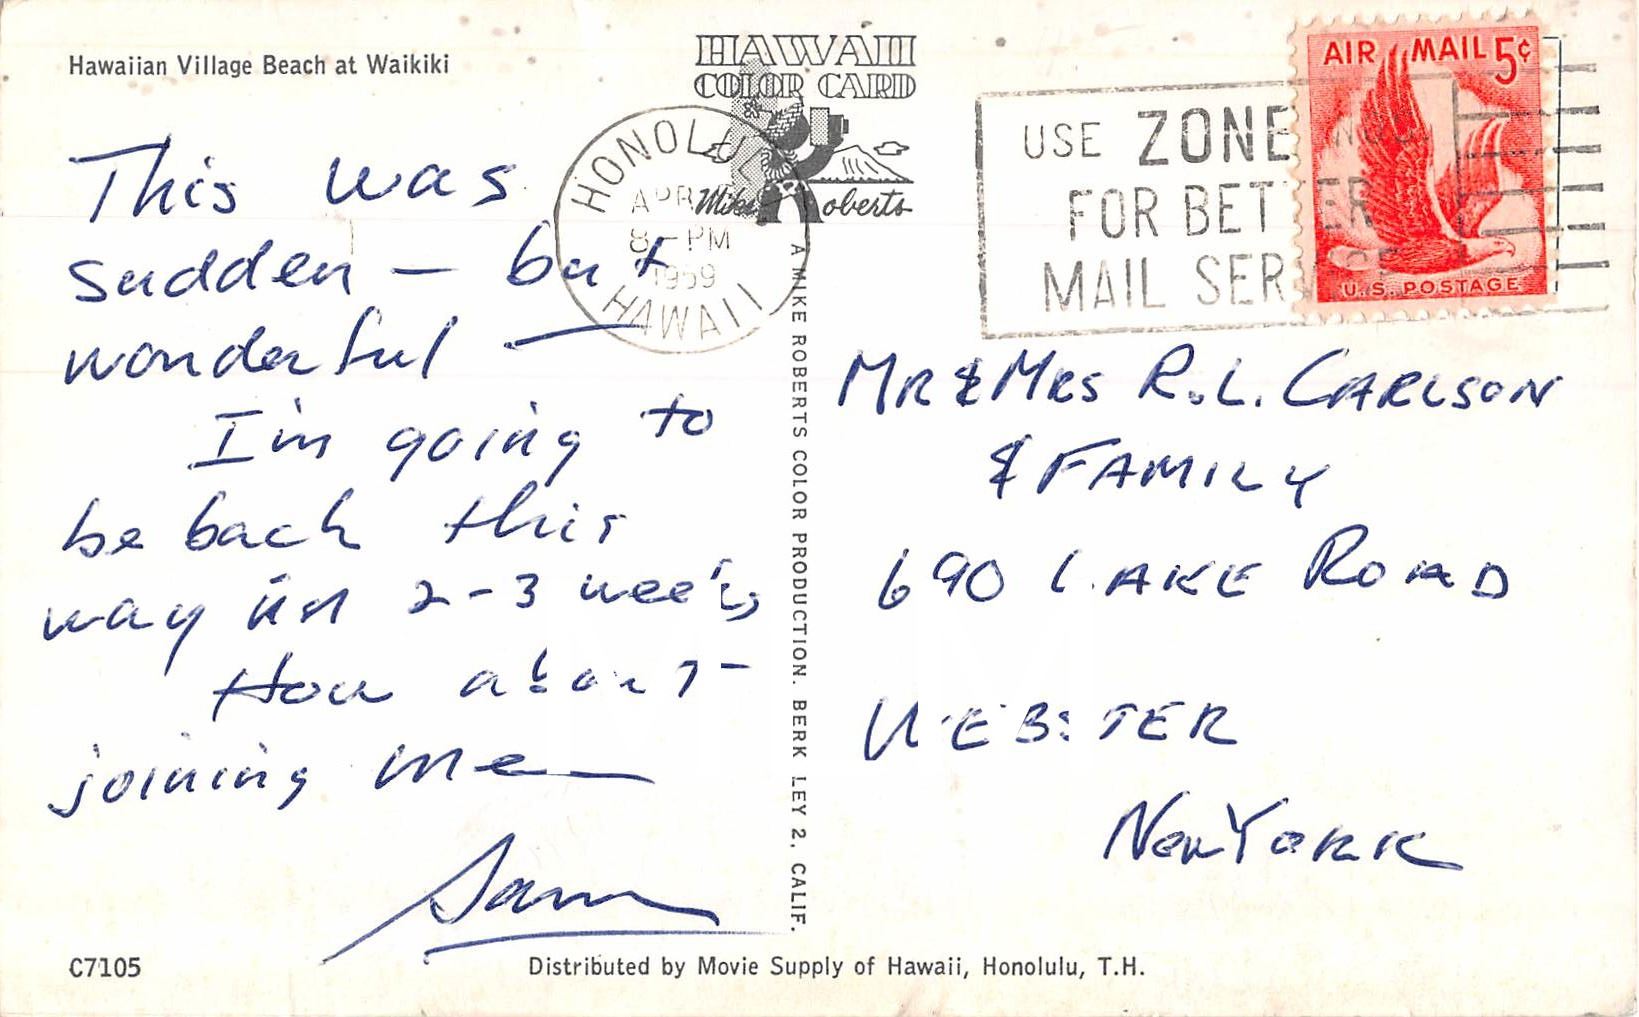 Hawaiian Village Beach at Waikiki
HAWAII
COLOR CARD
Mike Roberts
HONOLULU
APR
8 - PM
1959
HAWAII
USE ZONE NOS
FOR BETTER
MAIL SERVICE
AIR MAIL 5¢
U.S. POSTAGE
This was
sudden — but
wonderful —
I'm going to
be back this
way in 2-3 weeks
How about
joining me —
Sam
A MIKE ROBERTS COLOR PRODUCTION. BERKELEY 2, CALIF.
MR & MRS R.L. CARLSON
& FAMILY
690 LAKE ROAD
WEBSTER
NEW YORK
C7105
Distributed by Movie Supply of Hawaii, Honolulu, T.H.